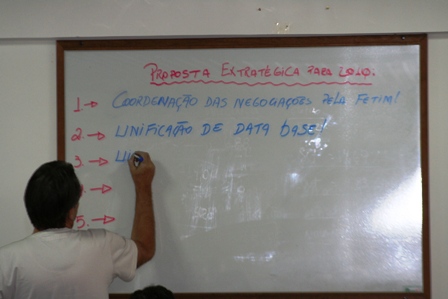 PROPOSTA EXTRATÉGICA PARA 2010.
1→ COORDENAÇÃO DAS NEGOCIAÇÕES PELA FETIM!
2→ UNIFICAÇÃO DE DATA base!
3→ UN
→
5.→